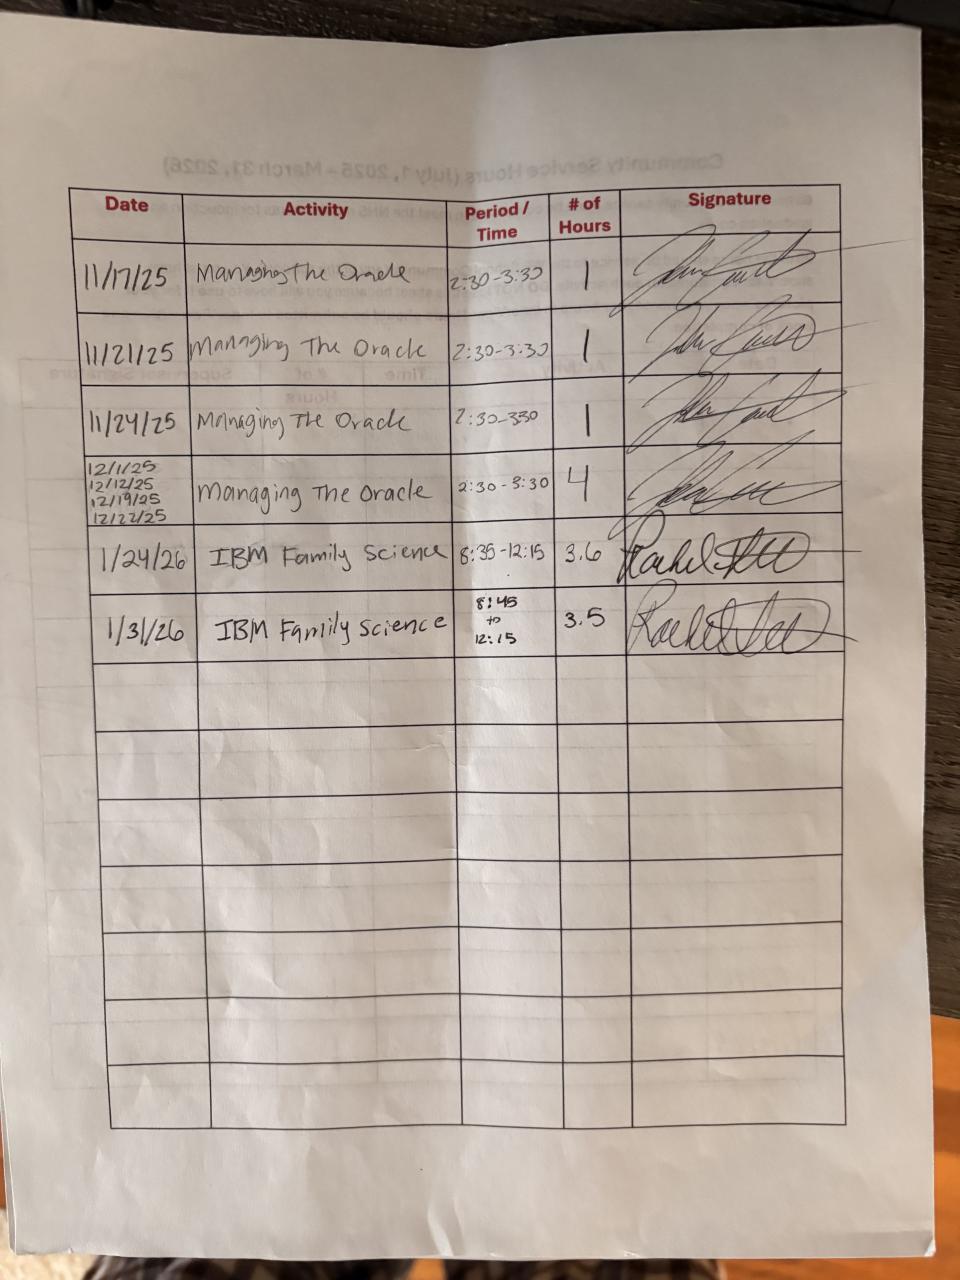 Community Service Hours (July 1, 2025 – March 31, 2026)
Date Activity Period / Time # of Hours Signature
11/17/25 Managing The Oracle 2:30-3:30 1
11/21/25 Managing The Oracle 2:30-3:30 1
11/24/25 Managing The Oracle 2:30-330 1
12/1/25
12/12/25
12/19/25
12/22/25
Managing The Oracle 2:30-3:30 4
1/24/26 IBM Family Science 8:35-12:15 3.6 Rachel
1/31/26 IBM Family Science 8:45 to 12:15 3.5 Rachel